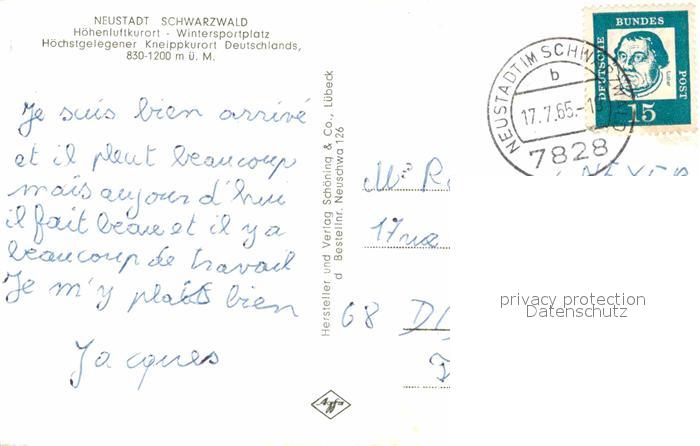 NEUSTADT SCHWARZWALD
Höhenluftkurort - Wintersportplatz
Höchstgelegener Kneippkurort Deutschlands,
830-1200 m ü. M.
Je suis bien arrivé
et il pleut beaucoup
mais aujourd'hui
il fait beau et il y a
beaucoup de travail
Je m'y plais bien
Jacques
Hersteller und Verlag Schöning & Co., Lübeck
d Bestellnr. Neuschwa 126
Agfa
DEUTSCHE BUNDES POST
Luther
15
NEUSTADT IM SCHWARZWALD
b
17.7.65.-1
7828
17 rue
68
privacy protection
Datenschutz